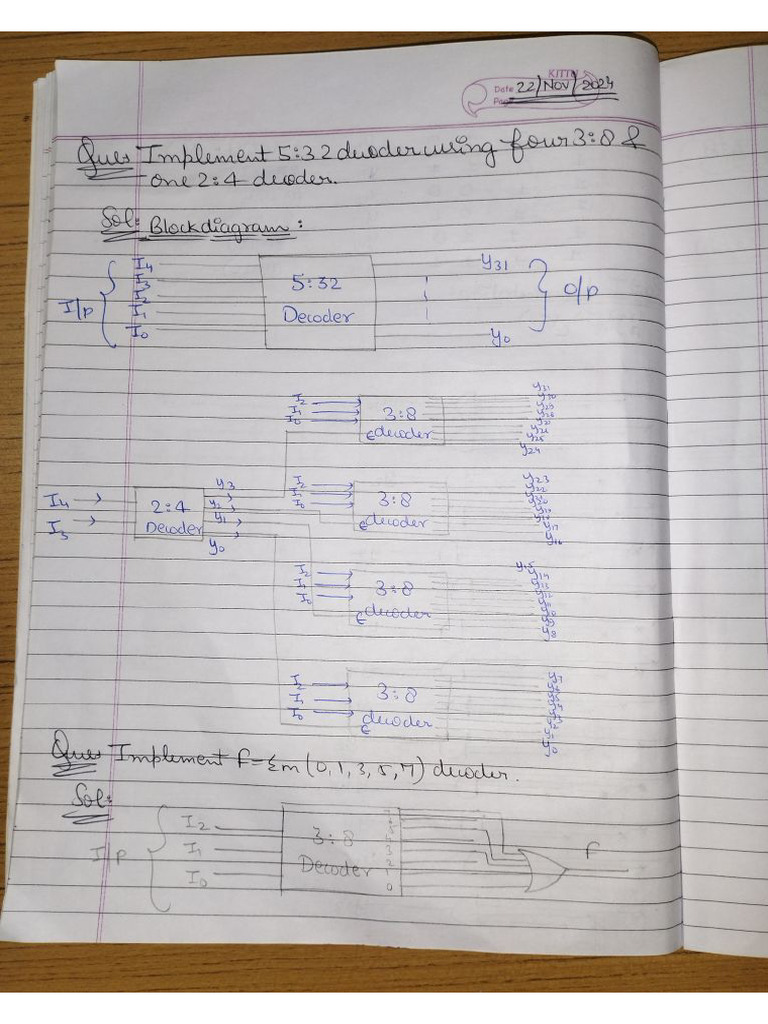 KITTU
Date 22/Nov/2024
Page
Ques Implement 5:32 decoder using four 3:8 &
one 2:4 decoder.
Sol: Block diagram:
I/p
I4
I3
I2
I1
I0
5:32
Decoder
y31
y0
O/p
I2
I1
I0
3:8
E decoder
y31
y30
y29
y25
y24
I4
I3
2:4
Decoder
y3
y2
y1
y0
I2
I1
I0
3:8
E decoder
y23
y17
y16
I2
I1
I0
3:8
E decoder
y15
y8
I2
I1
I0
3:8
decoder
E
Ques Implement f=Σm(0,1,3,5,7) decoder.
Sol:
I/p
I2
I1
I0
3:8
Decoder
3
2
1
0
F